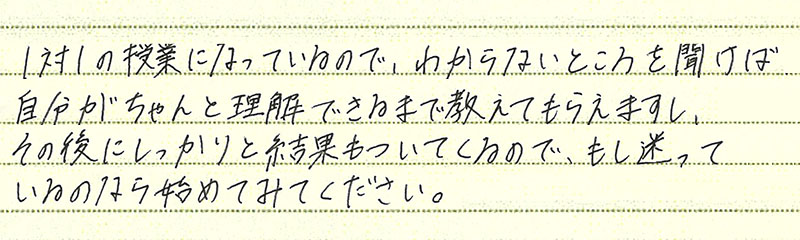 1対1の授業になっているので、わからないところを聞けば
自分がちゃんと理解できるまで教えてもらえますし、
その後にしっかりと結果もついてくるので、もし迷って
いるのなら始めてみてください。